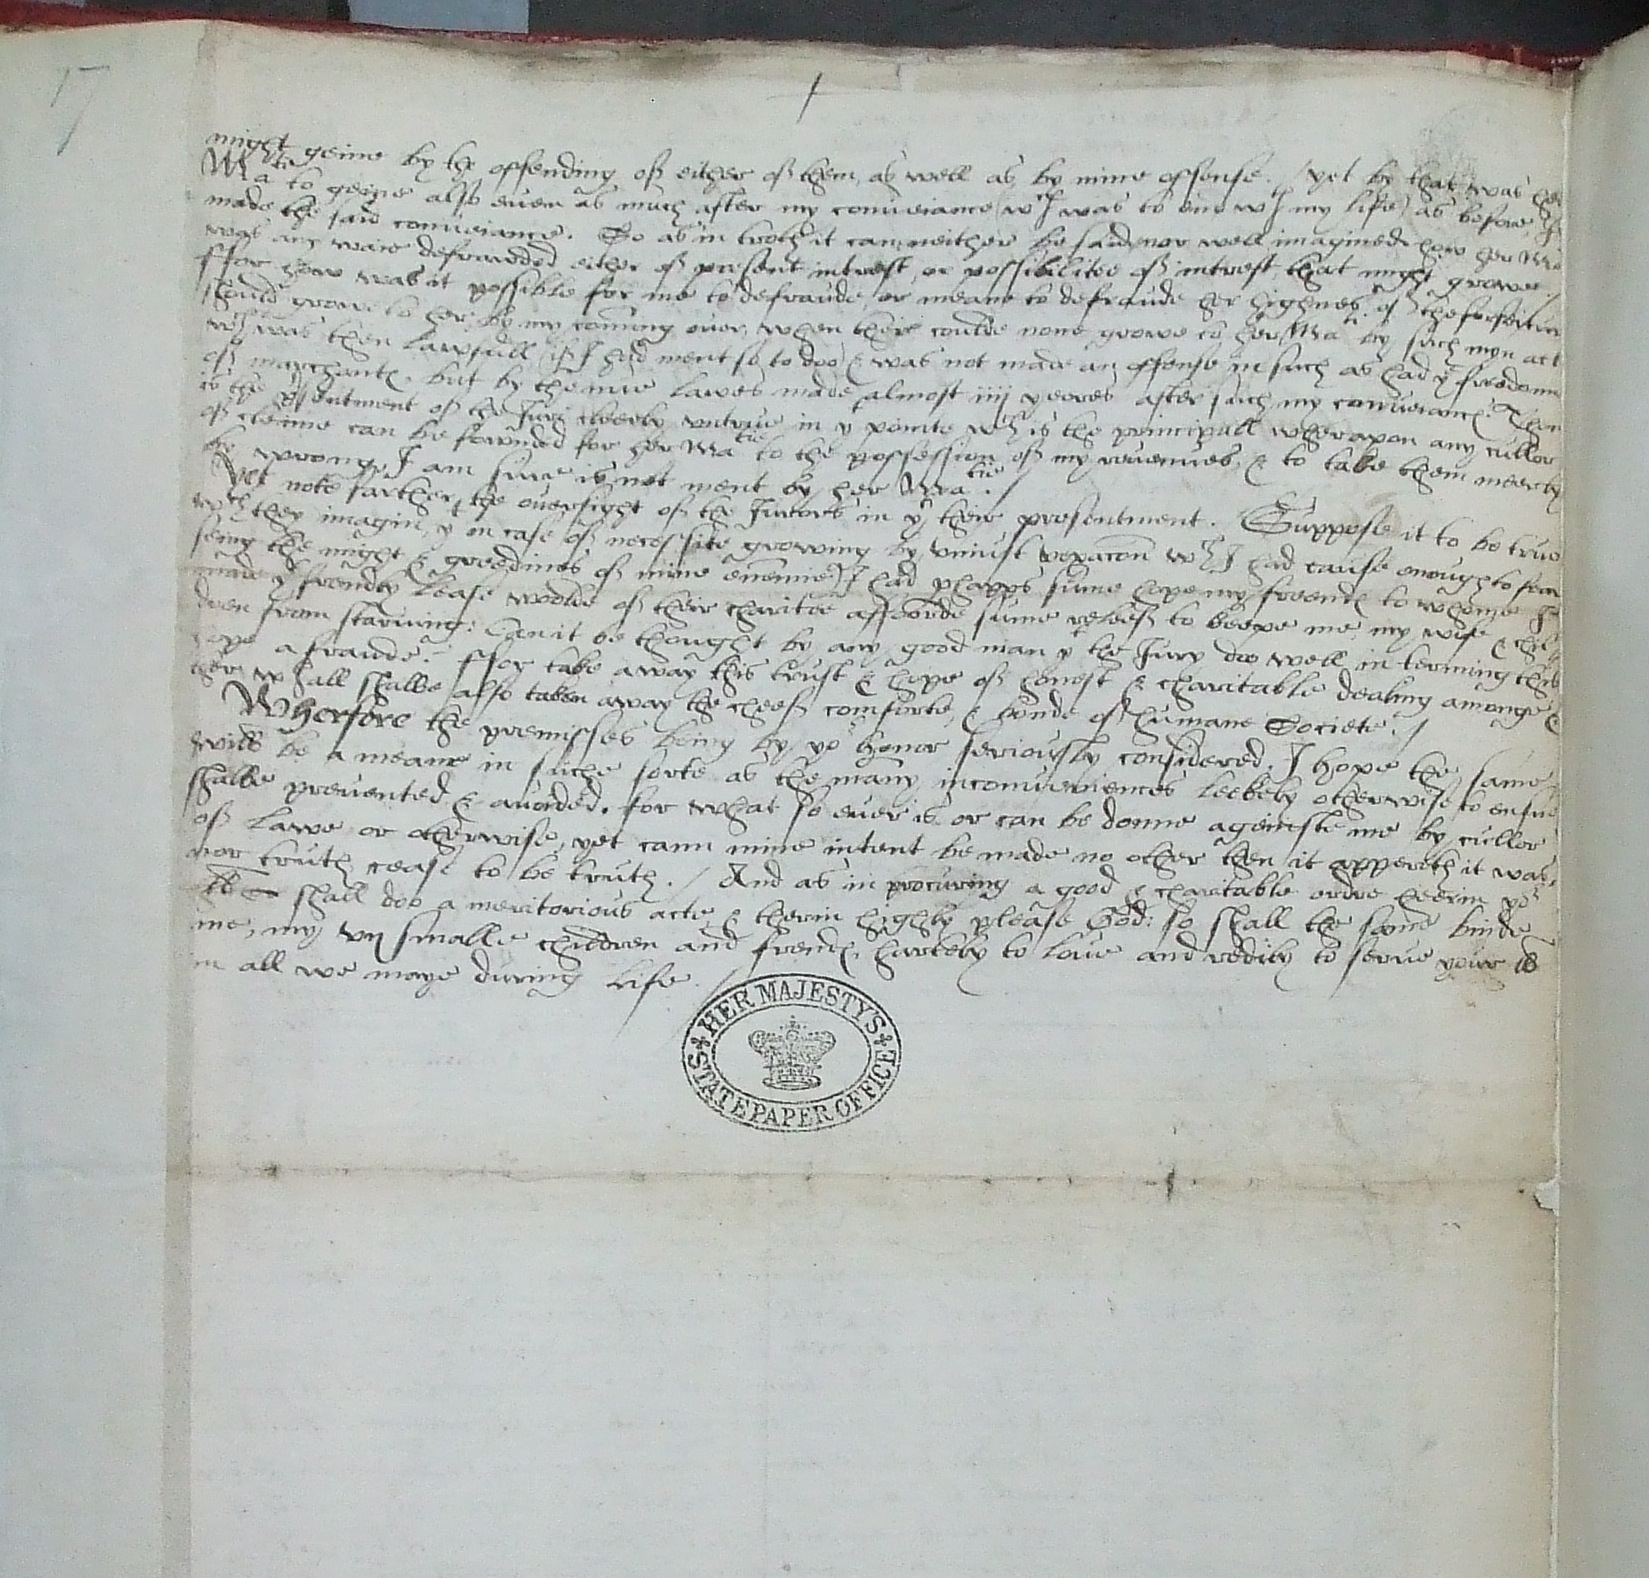 17
might geine by the offending of either of them, as well as by mine offense. / yet by that was her
Matie to geine also euen as much after my conueiance (wch was to end wth my life) as before I
made the said conueiance. So as in troth it can neither be said nor well imagined how her Matie
was any waie defrauded either of present intrest, or possibilitee of intrest that might growe /
ffor how was it possible for me to defraude, or meane to defraude her highnes of the forfeiture
should growe to her by my coming ouer, when their coulde none growe to her Matie by such myn act
wch was then lawfull (if I had ment so to doo) & was not made an offense in such as had ye freedome
of marchants, but by the nue lawes made almost iiij yeeres after such my conueiance. Then
is the psentment of the Jury cleerly vntrue in yt pointe wch is the principall wherapon any cullor
of cleime can be fownded for her Matie to the possession of my reuenues, & to take them meerly
be wronge I am sure is not ment by her Matie. /
Yet note farther the ouersight of the Jurors in yt their presentment. Suppose it to be true
wch they imagin, yt in case of necessite growing by vniust vexacon wch I had cause enough to fear
seing the might & greedines of mine enemie) I had phapps sume hope my freends to whome I
made yt frendly lease woolde of their charitee affoorde sume releef to keepe me my wife & chil
dren from staruing: Can it be thought by any good man yt the Jury doo well in terming this
hope a fraude? ffor take away this trust & hope of honest & charitable dealing amonge &
ther wthall shalbe also taken away the cheef comforte, & bonde of humane Societe. /
Wherfore the premisses being by yor honor seriously considered, I hope the same
will be a meane in suche sorte as the many inconueniences leekely otherwise to ensue
shalbe preuented & auoided. for what so euer is or can be donne ageinste me by cullor
of lawe or otherwise, yet cann mine intent be made no other then it appereth it was,
nor truth cease to be truth. / And as in procuring a good & charitable ordre heerin yor
shall doo a meritorious acte & therin highly please God: so shall the same binde
me, my vij smalle children and frends, hartely to loue and redily to serue your
in all we maye during life. /
HER MAJESTY'S STATE PAPER OFFICE